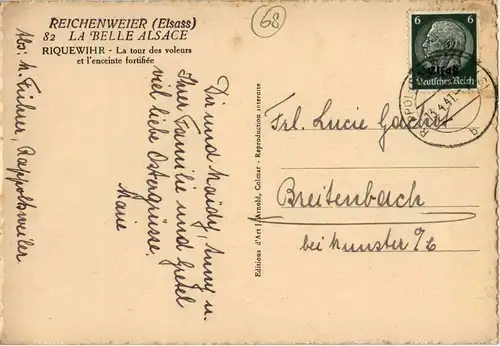 REICHENWEIER (Elsass)
82 LA BELLE ALSACE
RIQUEWIHR - La tour des voleurs
et l'enceinte fortifiée
68
6 6
Elsaß
Deutsches Reich
Abs: M. Eichner, Rappoltsweiler
Dir und Maidy, Anny u.
Ihrer Familie und Gretel
viel liebe Ostergrüsse.
Marie
Editions d'Art J. Arnold, Colmar - Reproduction interdite
Frl. Lucie
Breitenbach
bei Munster